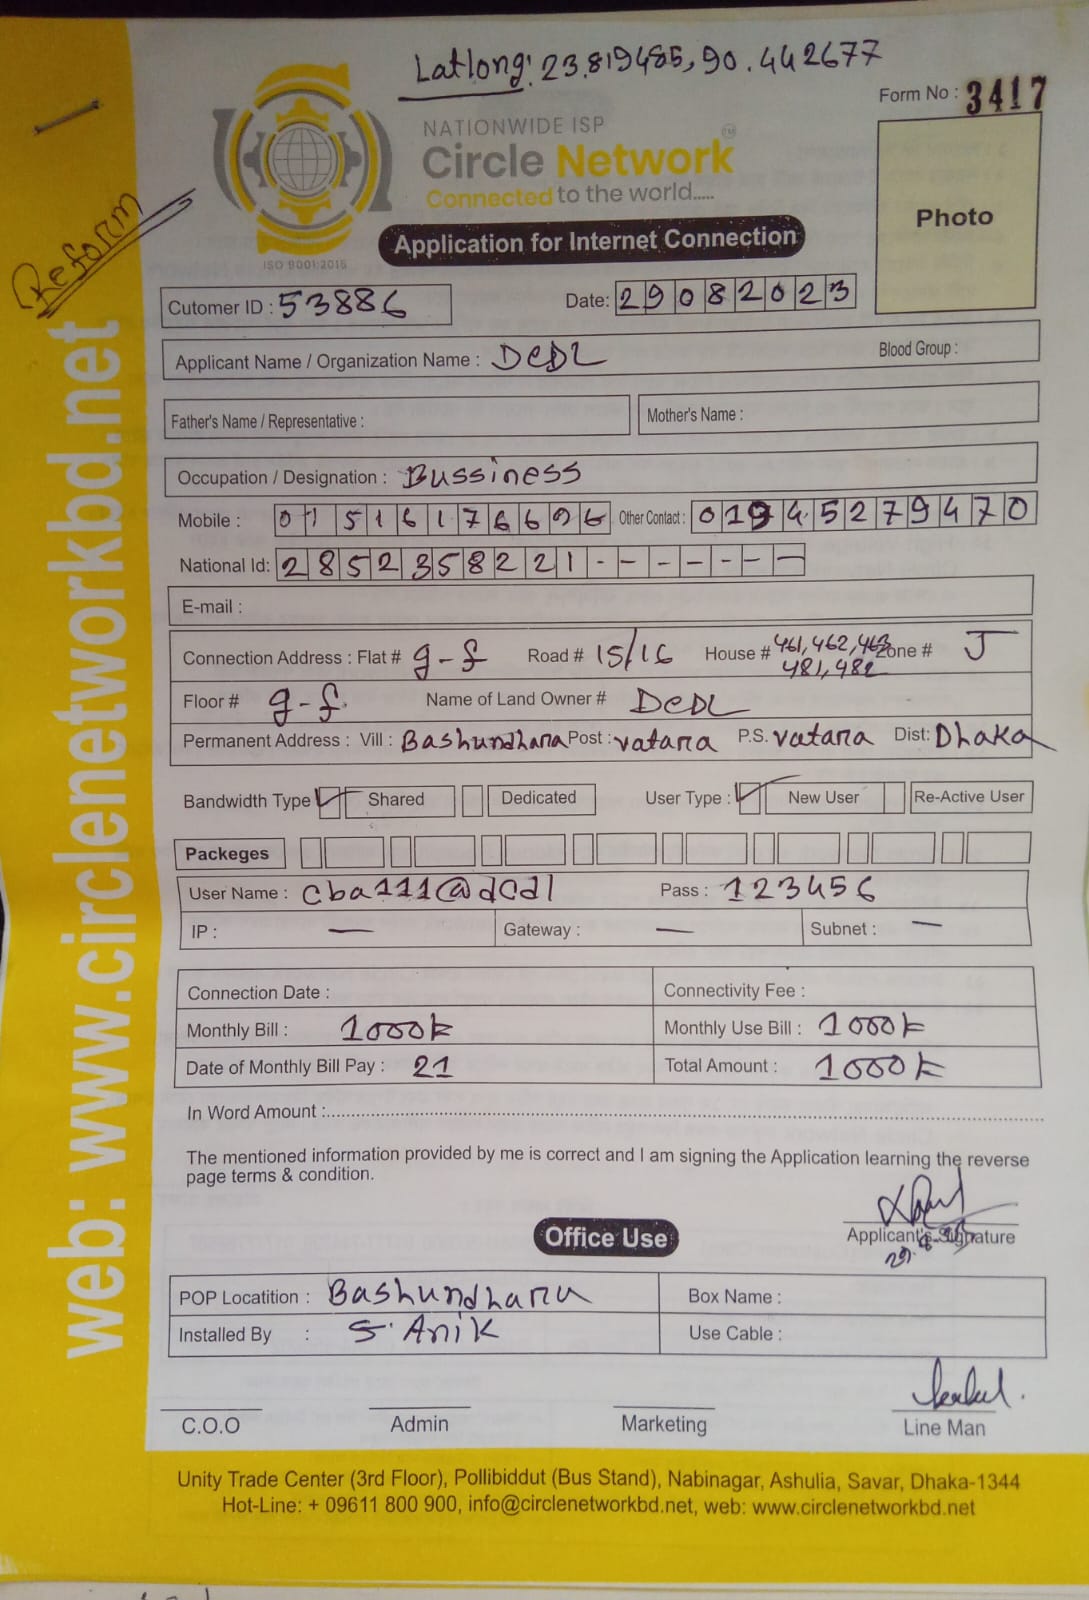 Latlong: 23.819485, 90.442677
Form No : 3417
NATIONWIDE ISP
Circle Network
TM
Connected to the world.....
ISO 9001:2015
Reform
Application for Internet Connection
Photo
Cutomer ID : 53886
Date: 29082023
Applicant Name / Organization Name : DCDL
Blood Group :
Father's Name / Representative :
Mother's Name :
Occupation / Designation : Bussiness
Mobile : 01516176696 Other Contact : 01945279470
National Id: 2852358221-------
E-mail :
Connection Address : Flat # g-f Road # 15/16 House # 461, 462, 463 Zone # J
481, 482
Floor # g-f. Name of Land Owner # DCDL
Permanent Address : Vill : Bashundhara Post : vatara P.S. vatara Dist: Dhaka
Bandwidth Type Shared Dedicated User Type : New User Re-Active User
Packeges
User Name : cba111@dcdl Pass : 123456
IP : — Gateway : — Subnet : —
Connection Date : Connectivity Fee :
Monthly Bill : 1000 Monthly Use Bill : 1000
Date of Monthly Bill Pay : 21 Total Amount : 1000
In Word Amount :
The mentioned information provided by me is correct and I am signing the Application learning the reverse
page terms & condition.
Applicant's Signature
Office Use
POP Locatition : Bashundhara Box Name :
Installed By : S. Anik Use Cable :
C.O.O Admin Marketing Line Man
Unity Trade Center (3rd Floor), Pollibiddut (Bus Stand), Nabinagar, Ashulia, Savar, Dhaka-1344
Hot-Line: + 09611 800 900, info@circlenetworkbd.net, web: www.circlenetworkbd.net
web: www.circlenetworkbd.net